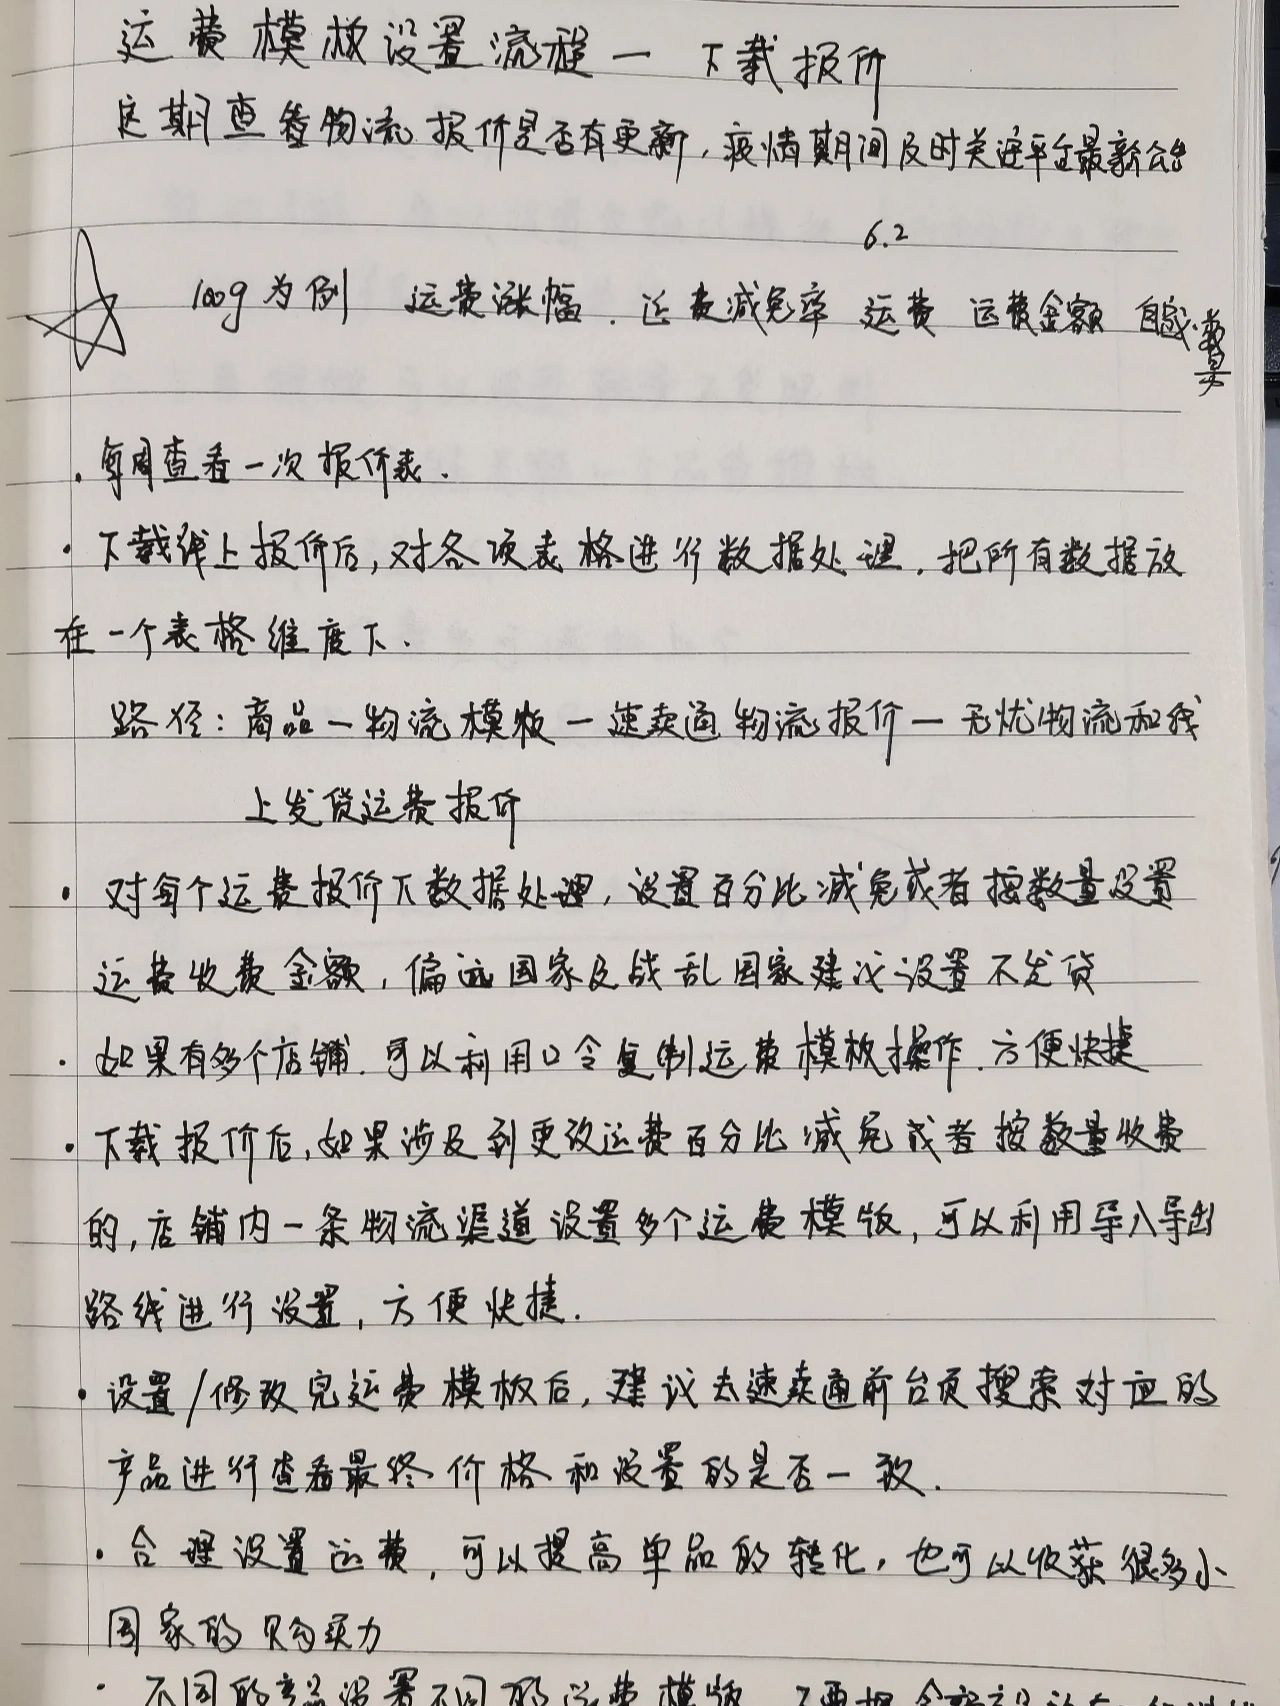 运费模板设置流程一 下载报价
定期查看物流报价是否有更新,疫情期间及时关注平台最新公告
6.2
100g为例 运费涨幅.运费减免率 运费 运费金额 自己算
.每周查看一次报价表.
·下载线上报价后,对各项表格进行数据处理.把所有数据放
在一个表格维度下.
路径:商品一物流模板一速卖通物流报价一无忧物流和线
上发货运费报价
·对每个运费报价下数据处理,设置百分比减免或者按数量设置
运费收费金额,偏远国家及战乱国家建议设置不发货
·如果有多个店铺.可以利用口令复制运费模板操作.方便快捷
·下载报价后,如果涉及到更改运费百分比减免或者按数量收费
的,店铺内一条物流渠道设置多个运费模版,可以利用导入导出
路线进行设置,方便快捷.
·设置/修改完运费模板后,建议去速卖通前台页搜索对应的
产品进行查看最终价格和设置的是否一致.
·合理设置运费,可以提高单品的转化,也可以收获很多小
国家的购买力
·不同的产品设置不同的运费模版